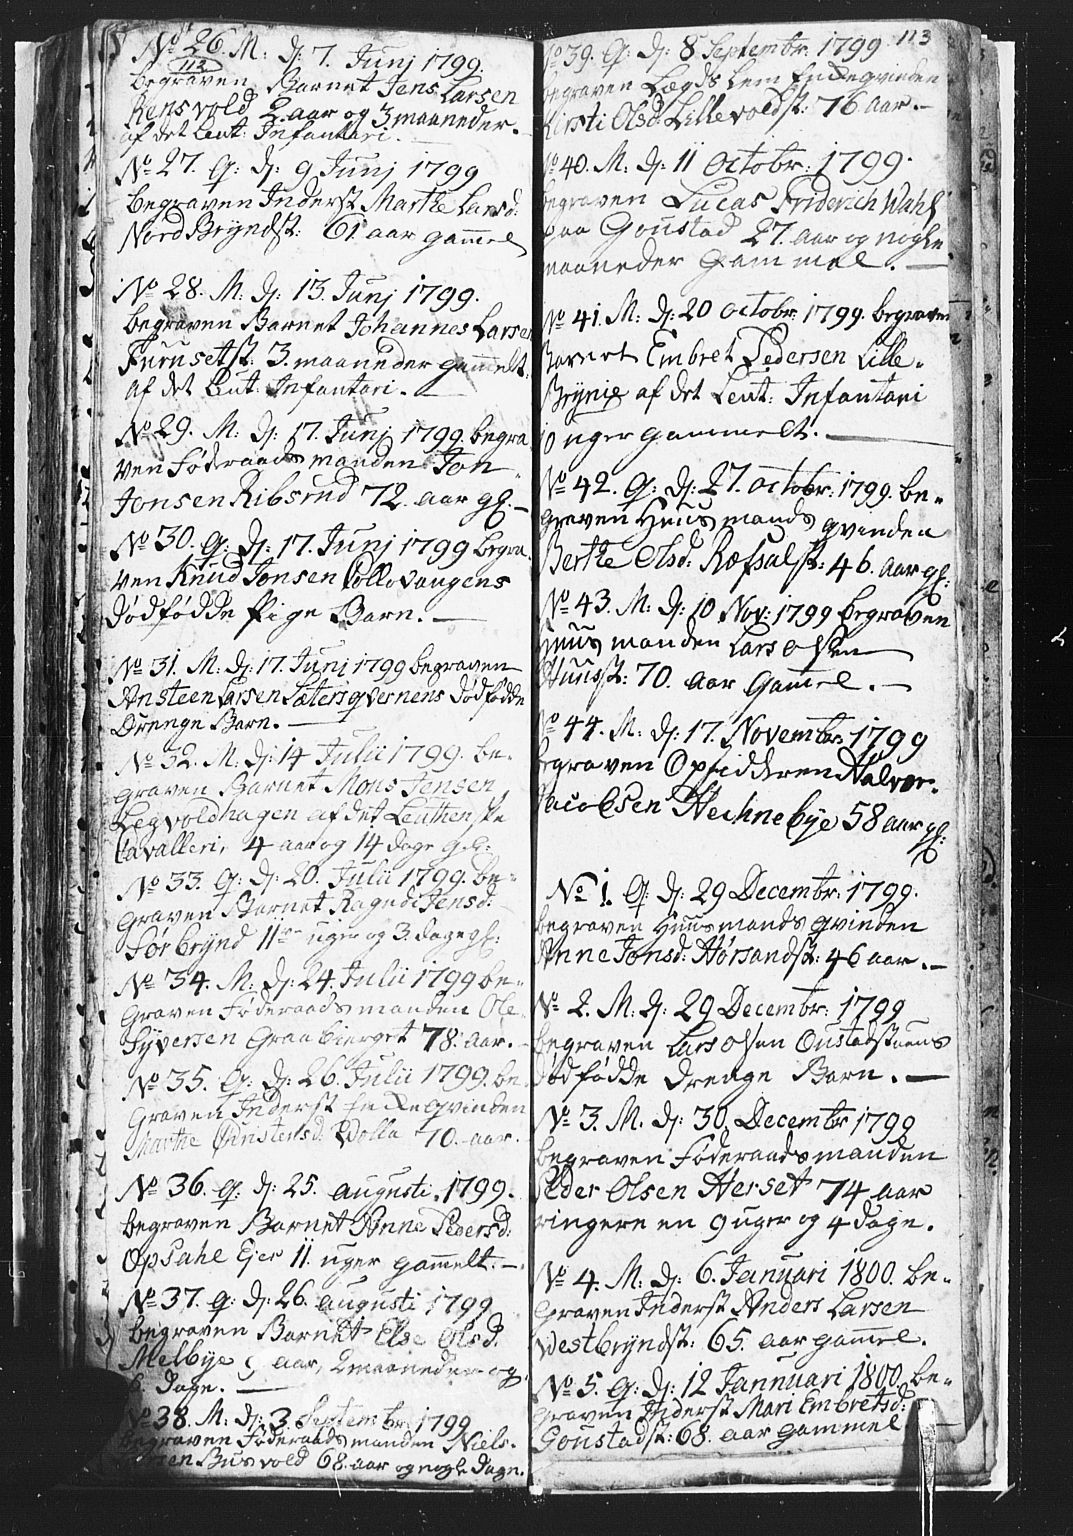 No 26. M: D: 7. Junj 1799.
112
begraven Barnet Jens Larsen
Rensvold 2. aar og 3 maaneder.
af det Leut: Infantari.
No 27. Q: D: 9 Junj 1799
begraven Inderst Marthe Larsd:
Nord Bryndst: 61 aar gam̅el
No 28. M. D: 13. Junj 1799.
begraven Barnet Johannes Larsen
Furusetst: 3. maaneder gam̅elt.
af det Leut: Infantari.
No 29. M: D: 17. Junj 1799. begra
ven Føderaadsmanden Jon
Jonsen Ribsrud 72. aar gl. —
No 30. Q: D: 17. Junj 1799 begra
ven Knud Jonsen Collovangens
dødfødde Pige Barn. —
No 31. M. D: 17. Junj 1799 begraven
Ansteen Larsen Sætersqvernens dødfødde
Drenge Barn. —
No 32. M. D: 14 Julii 1799. be-
graven Barnet Mons Jensen
Legvoldhagen af det Leuthenske
Cavalleri, 4 aar og 14 dage gl:
No 33. Q: D: 20. Julii 1799. be-
graven Barnet Ragndi Jensd:
Sørbrynd 11 uger og 3 dage gl:
No 34. M: D: 24. Julii 1799 be-
graven Føderaadsmanden Ole
Syversen Graabierget 78. aar. -
No 35. Q: D: 26. Julii 1799. be
graven Inderst Enkeqvinden
Marthe Wolla 70. aar.
No 36. Q: D: 25. augusti. 1799.
begraven Barnet Anne Pedersd:
Opsahl Ejer 11. uger gam̅elt. —
No 37. Q: D: 26. augusti 1799
begraven Barnet Else Olsd.
Melbye aar, 2 maaneder og
6. dage. —
No 38. M. D: 3. Septembr: 1799
begraven Føderaadsmanden Niels
Busvold 68. aar og nogle dage.
113
No 39. Q: D: 8 Septembr: 1799.
begraven Lægds Lem Enkeqvinden
Kirsti Olsd: Lillevoldst: 76 aar. —
No 40. M. D: 11 octobr: 1799.
begraven Lucas Friderich Wahl
paa Goustad 27. aar og nogle
maaneder Gammel. —
No 41. M: D: 20 octobr: 1799. begraven
Barnet Embret Pedersen Lille-
Brynie af det Leut: Infantari
10 uger gammelt. —
No 42. Q: D: 27. octobr: 1799. be-
graven Huusmands qvinden
Berthe Olsd: Ræfsalst: 46. aar gl:
No 43. M. D: 10 Nov: 1799 begraven
Huusmanden Lars Olsen
Huusst: 70. aar Gam̅el. —
No 44. M. D: 17. Novembr: 1799
begraven Opsidderen Halvor
Jacobsen Hechnebye 58 aar gl:
No 1. Q: D: 29 Decembr: 1799.
begraven Huusmands qvinden
Anne Jonsd: Hørsandst: 46 aar. —
No 2. M. D: 29 Decembr: 1799
begraven Lars Olsen Oustadstuens
dødfødde Drenge Barn. —
No 3. M. D: 30. Decembr 1799
begraven Føderaadsmanden
Peder Olsen Herset 74 aar
ringere en 9 uger og 4 dage.
No 4. M. D: 6. Januari 1800. be-
graven Inderst Anders Larsen
Westbryndst: 65. aar gam̅el.
No 5. Q: D: 12 Jannuari 1800. be-
graven Inderst Mari Embretsd:
Goustadst: 68. aar gammel